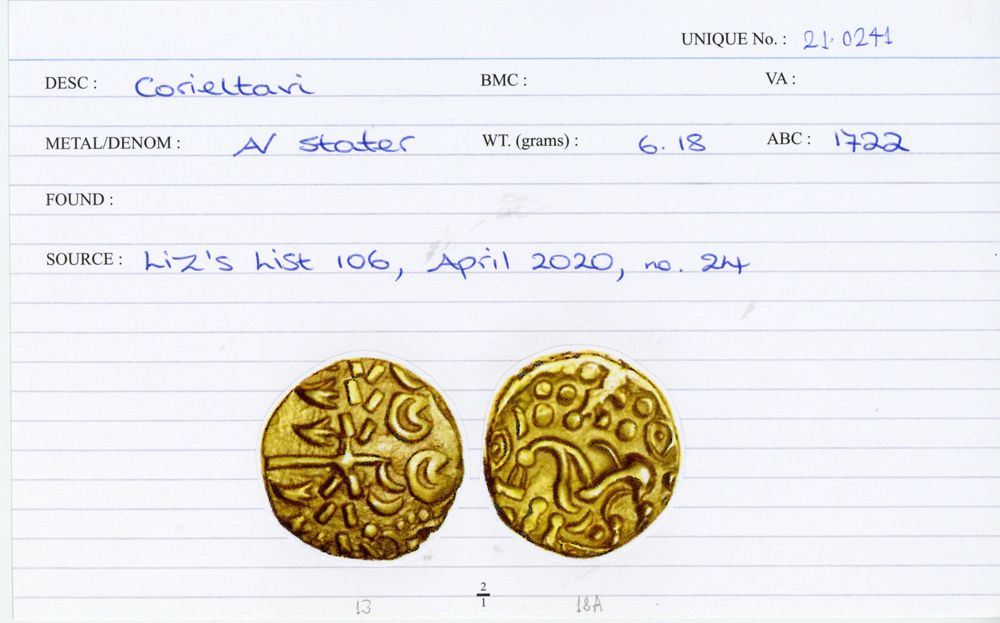 UNIQUE No. : 21.0241
DESC : Corieltavi BMC : VA :
METAL/DENOM : AV stater WT. (grams) : 6.18 ABC : 1722
FOUND :
SOURCE : Liz's List 106, April 2020, no. 24
2
1
13 18A